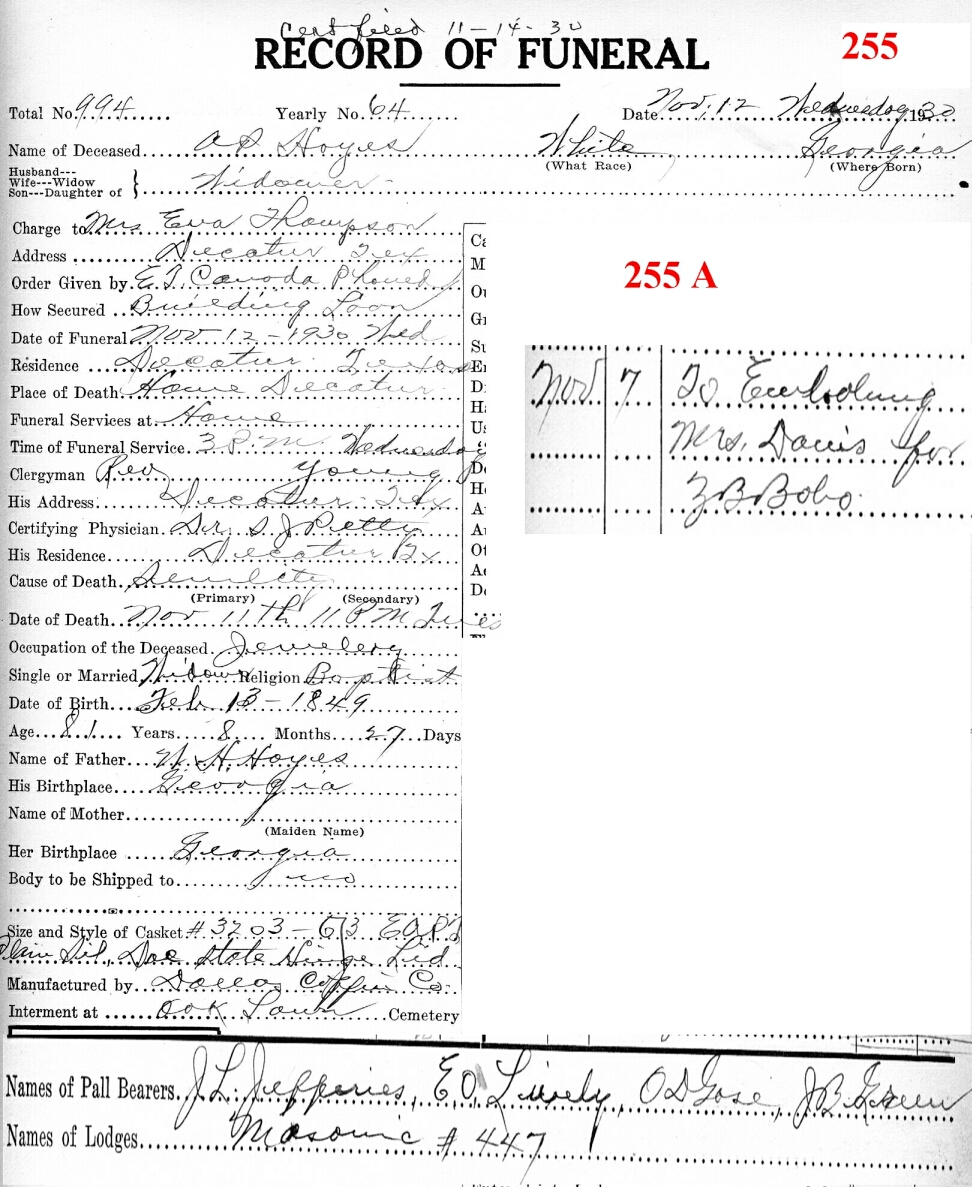 Cert filed 11-14-30
RECORD OF FUNERAL
255
Total No. 994 Yearly No. 64 Date Nov. 12 Wednesday 1930
Name of Deceased Hayes White Georgia
(What Race) (Where Born)
Husband---
Wife---Widow
Son---Daughter of Widower
Charge to Mrs Eva Thompson
Address Decatur Tex
Order Given by E.T. Phoned
How Secured Building Loan
Date of Funeral Nov 12-1930 Wed
Residence Decatur Texas
Place of Death Home Decatur
Funeral Services at Home
Time of Funeral Service 3 P.M. Wednesday
Clergyman Rev Young
His Address Decatur Tex
Certifying Physician Dr. S. J. Petty
His Residence Decatur Tx
Cause of Death Senility
(Primary) (Secondary)
Date of Death Nov 11th 11 P M Tues
Occupation of the Deceased Jewelery
Single or Married Widow Religion Baptist
Date of Birth Feb 13-1849
Age 81 Years 8 Months 27 Days
Name of Father W. H. Hayes
His Birthplace Georgia
Name of Mother
(Maiden Name)
Her Birthplace Georgia
Body to be Shipped to no
Size and Style of Casket # 3203-6/3
Plain Sil. State Hinge Lid
Manufactured by Dallas Coffin Co.
Interment at Oak Lawn Cemetery
255 A
Nov 7 To Embalming
Mrs. Davis for
Z B Bobo
Names of Pall Bearers. J L Jefferies, E O Lively, O D Gose, J B Green
Names of Lodges Masonic # 447